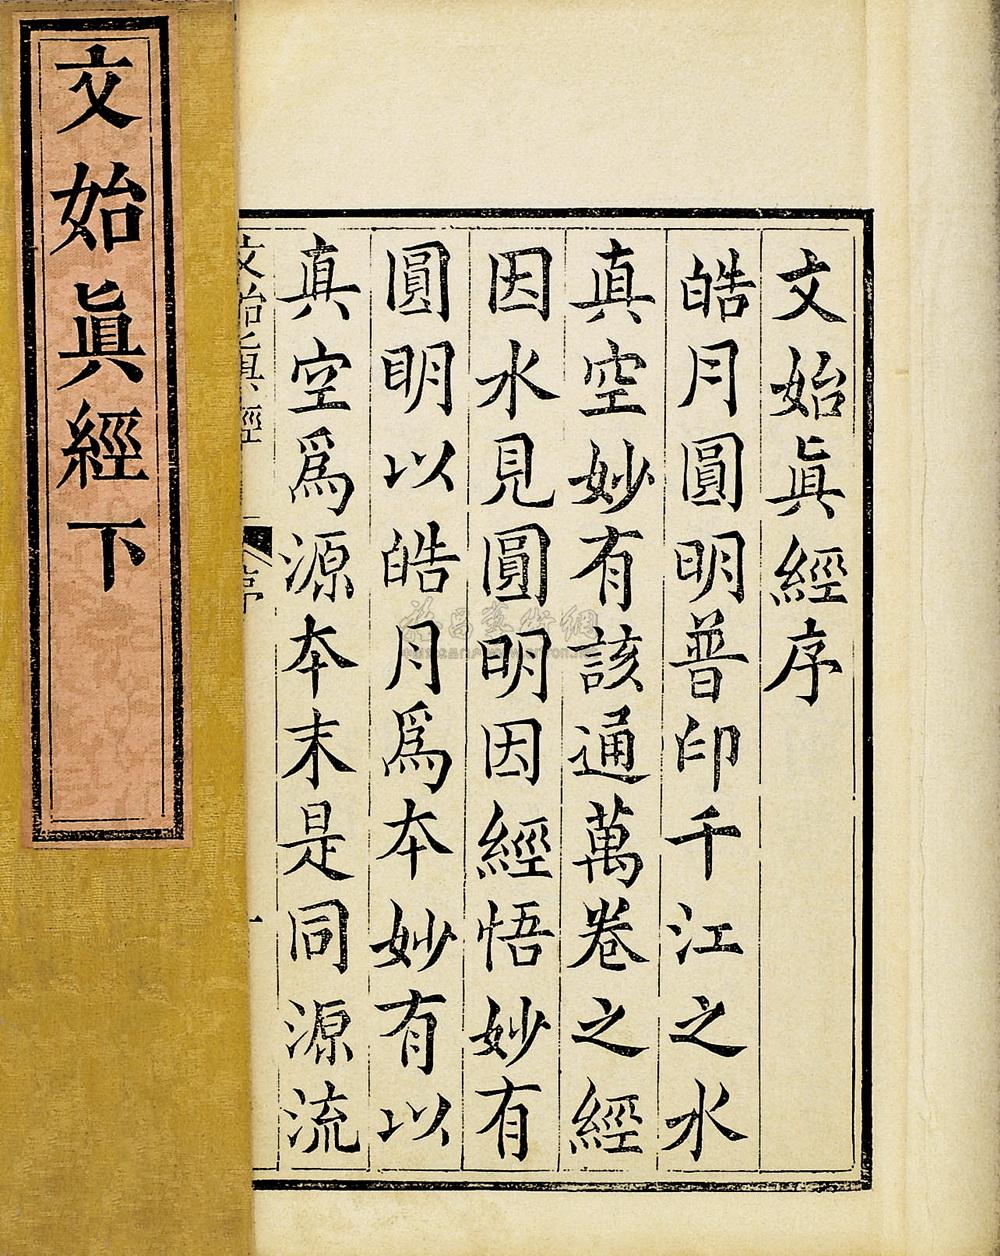 文始眞經下
文始眞經序
皓月圓明普印千江之水
真空妙有該通萬卷之經
因水見圓明因經悟妙有
圓明以皓月爲本妙有以
真空爲源本末是同源流
文始眞經
序
一